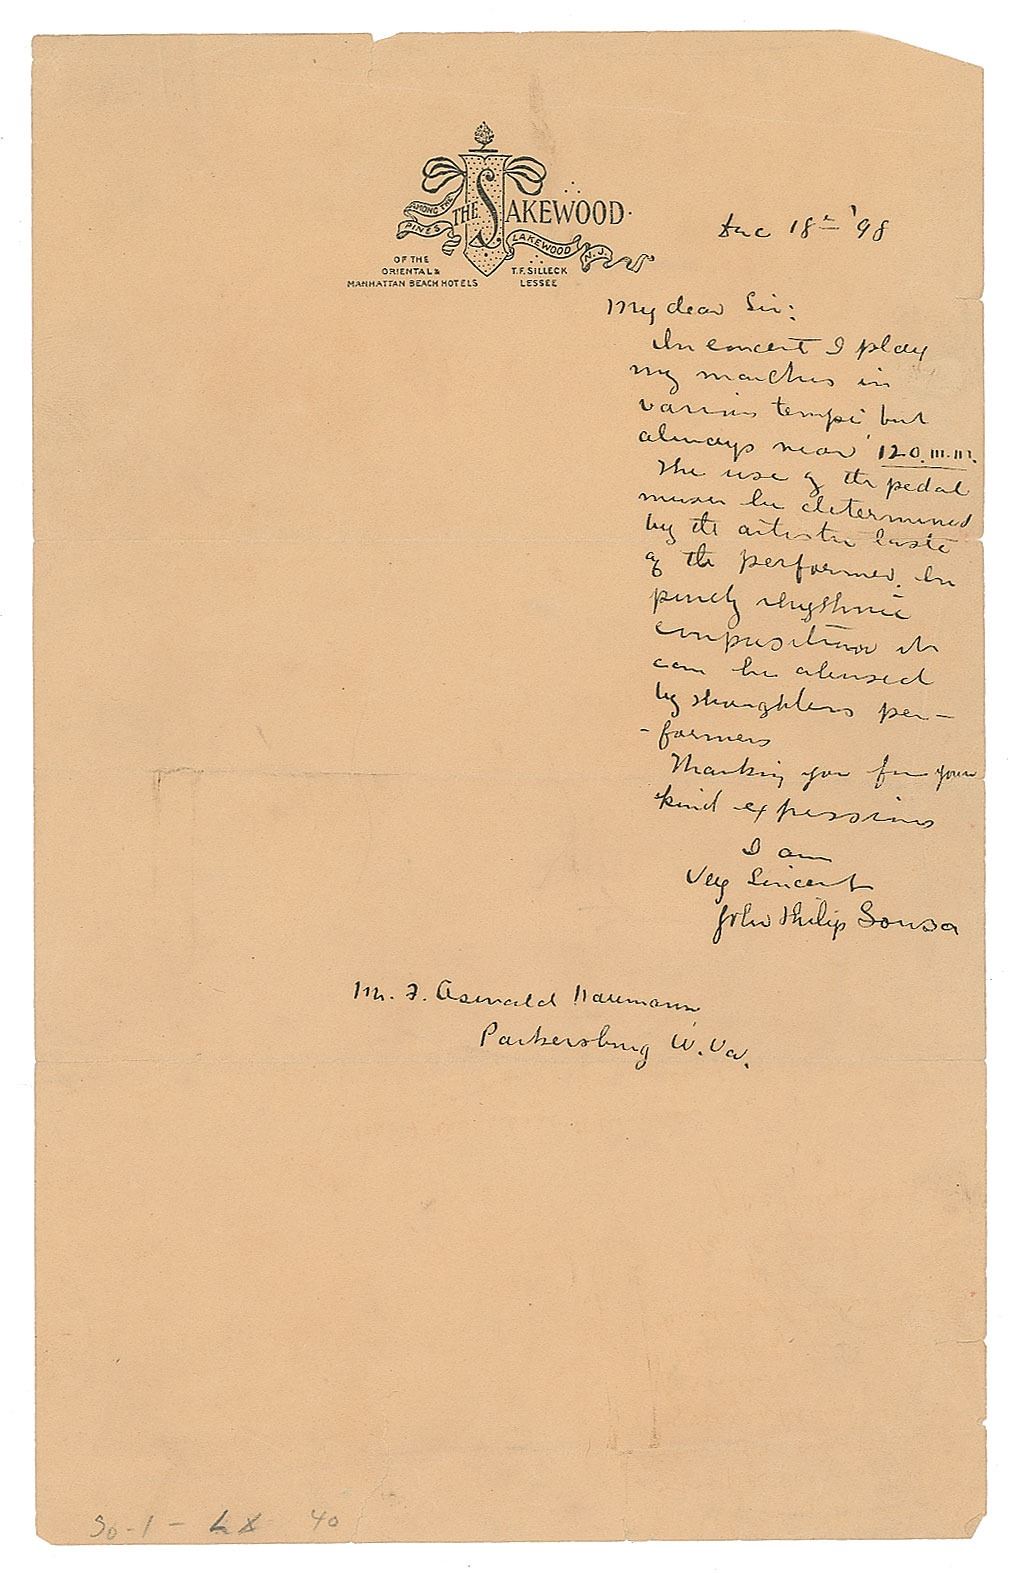 AMONG THE PINES
THE LAKEWOOD
LAKEWOOD N.J.
OF THE
ORIENTAL &
MANHATTAN BEACH HOTELS
T.F. SILLECK
LESSEE
Dec 18th '98
My dear Sir:
In concert I play
my marches in
various tempi but
always near 120 M.M.
The use of the pedal
must be determined
by the artistic taste
of the performer. In
purely rhythmic
compositions it
can be abused
by thoughtless per-
-formers
Thanking you for your
kind expressions
I am
Very Sincerely
John Philip Sousa
Mr. F. Oswald Naumann
Parkersburg W. Va.
30-1- LX 40